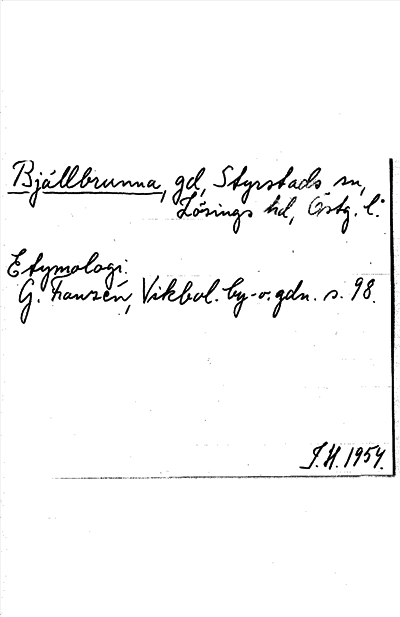 Bjällbrunna, gd, Styrstads sn,
Lösings hd, Östg. l.
Etymologi:
G. Franzén, Vikbol. by- o. gdn. s. 98.
J.H. 1954.